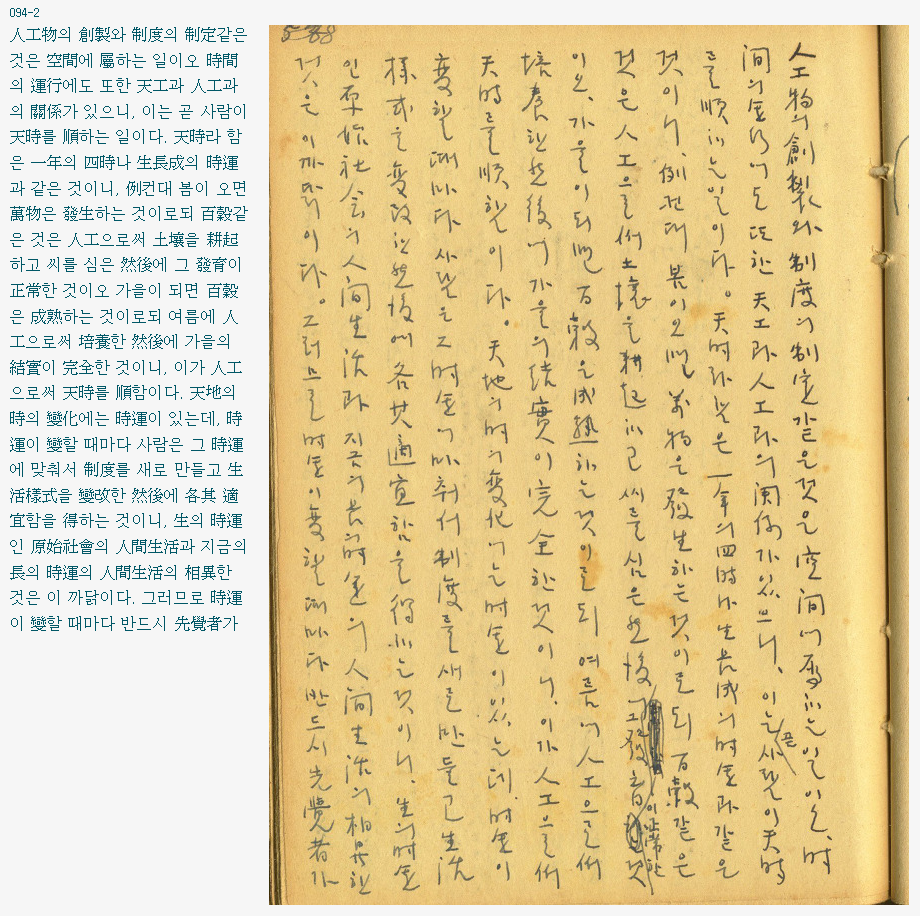 094-2
人工物의 創製와 制度의 制定같은
것은 空間에 屬하는 일이오 時間
의 運行에도 또한 天工과 人工과
의 關係가 있으니, 이는 곧 사람이
天時를 順하는 일이다. 天時라 함
은 一年의 四時나 生長成의 時運
과 같은 것이니, 例컨대 봄이 오면
萬物은 發生하는 것이로되 百穀같
은 것은 人工으로써 土壤을 耕起
하고 씨를 심은 然後에 그 發育이
正常한 것이오 가을이 되면 百穀
은 成熟하는 것이로되 여름에 人
工으로써 培養한 然後에 가을의
結實이 完全한 것이니, 이가 人工
으로써 天時를 順함이다. 天地의
時의 變化에는 時運이 있는데, 時
運이 變할 때마다 사람은 그 時運
에 맞춰서 制度를 새로 만들고 生
活樣式을 變改한 然後에 各其 適
宜함을 得하는 것이니, 生의 時運
인 原始社會의 人間生活과 지금의
長의 時運의 人間生活의 相異한
것은 이 까닭이다. 그러므로 時運
이 變할 때마다 반드시 先覺者가
人工物의 創製와 制度의 制定같은 것은 空間에 屬하는 일이오, 時
間의 運行에도 또한 天工과 人工과의 関係가 있으니, 이는 곧 사람이 天時
를 順하는 일이다。天時라 함은 一年의 四時나 生長成의 時運과 같은
것이니, 例컨대 봄이 오면 萬物은 發生하는 것이로되 百穀같은
것은 人工으로써 土壤을 耕起하고 씨를 심은 然後에 그 發育이 正常한 것
이오, 가을이 되면 百穀은 成熟하는 것이로되 여름에 人工으로써
培養한 然後에 가을의 結實이 完全한 것이니, 이가 人工으로써
天時를 順함이다。天地의 時의 變化에는 時運이 있는데, 時運이
變할 때마다 사람은 그 時運에 맞춰서 制度를 새로 만들고 生活
樣式을 變改한 然後에 各其 適宜함을 得하는 것이니, 生의 時運
인 原始社会의 人間生活과 지금의 長의 時運의 人間生活의 相異한
것은 이 까닭이다。그러므로 時運이 變할 때마다 반드시 先覺者가